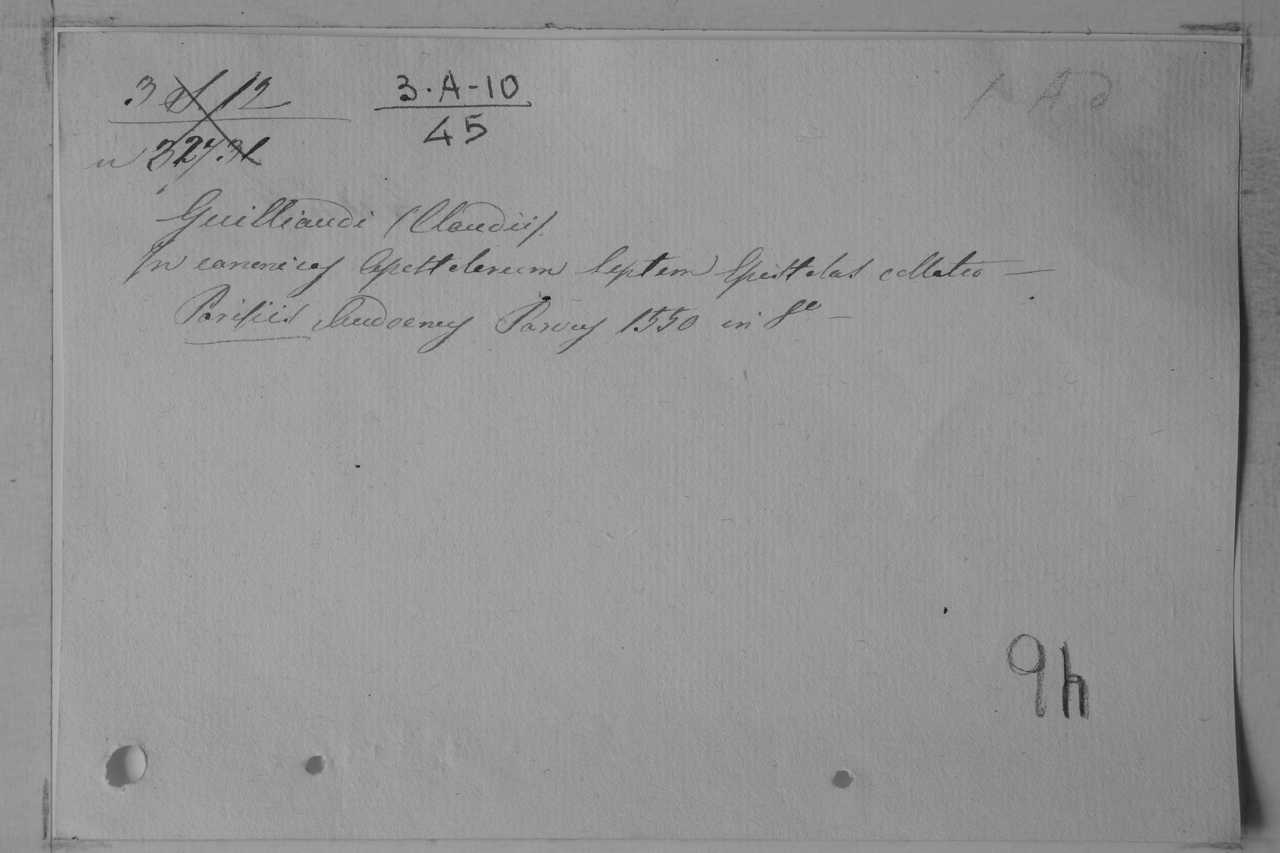 3 A 12 3·A-10
n 32731 45
Guilliaudi (Claudii).
In canonicas Apostolorum Septem Epistolas collatio —
Parisiis Audoenus Parvus 1550 in 8º —
9h